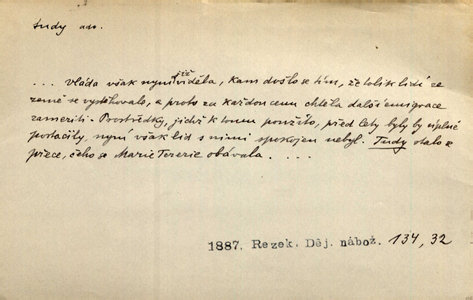 tudy adv.
... vláda však nyní již viděla, kam došlo se tím, že tolik lidí ze
země se vystěhovalo, a proto za každou cenu chtěla další emigrace
zameziti. Prostředky, jichž k tomu použito, před lety byly by úplně
postačily, nyní však lid s nimi spokojen nebyl. Tudy stalo se
přece, čeho se Marie Terezie obávala. ....
1887. Rezek. Děj. nábož. 134, 32